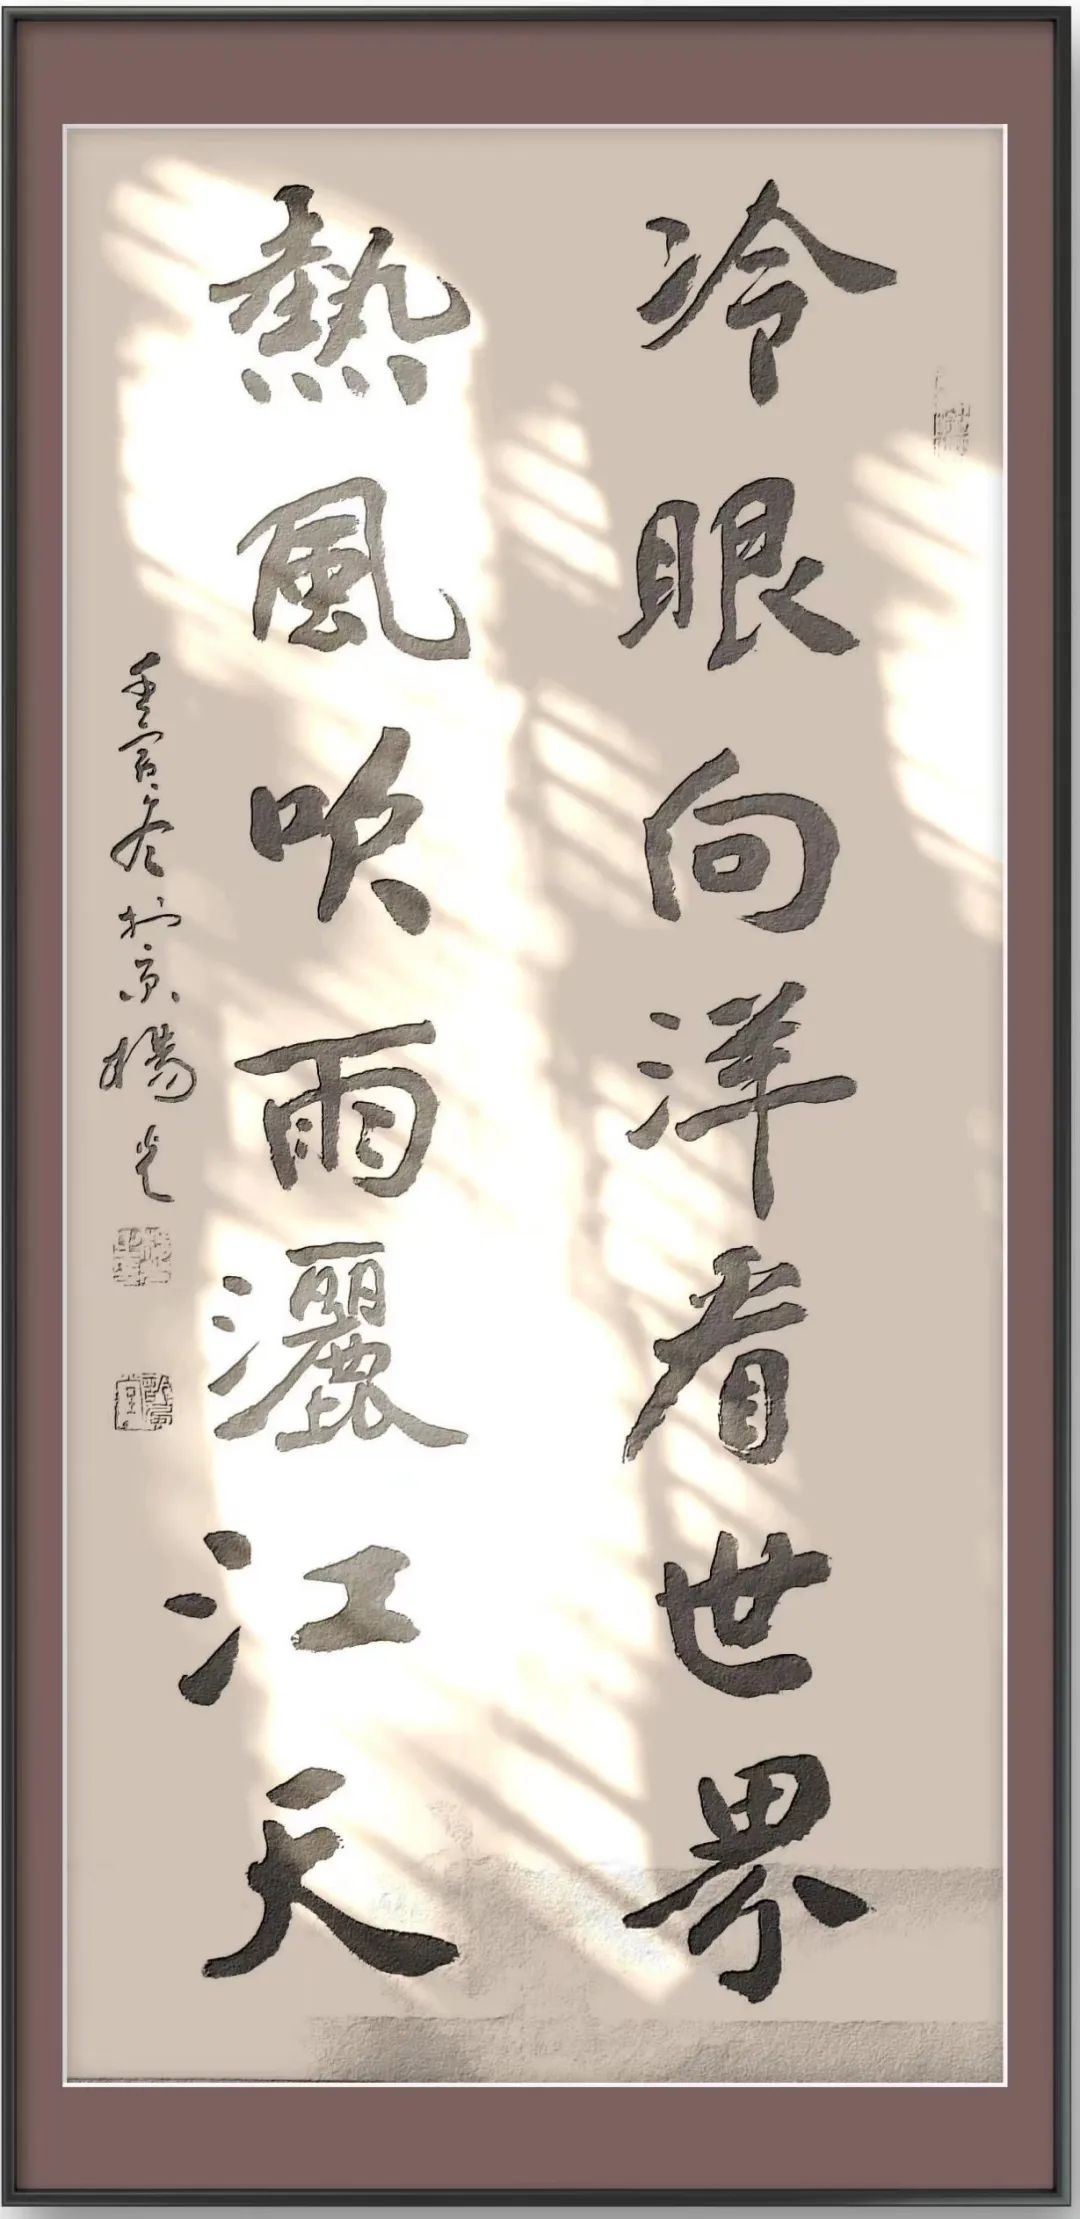 冷眼向洋看世界
熱風吹雨灑江天
壬寅冬於京楊光